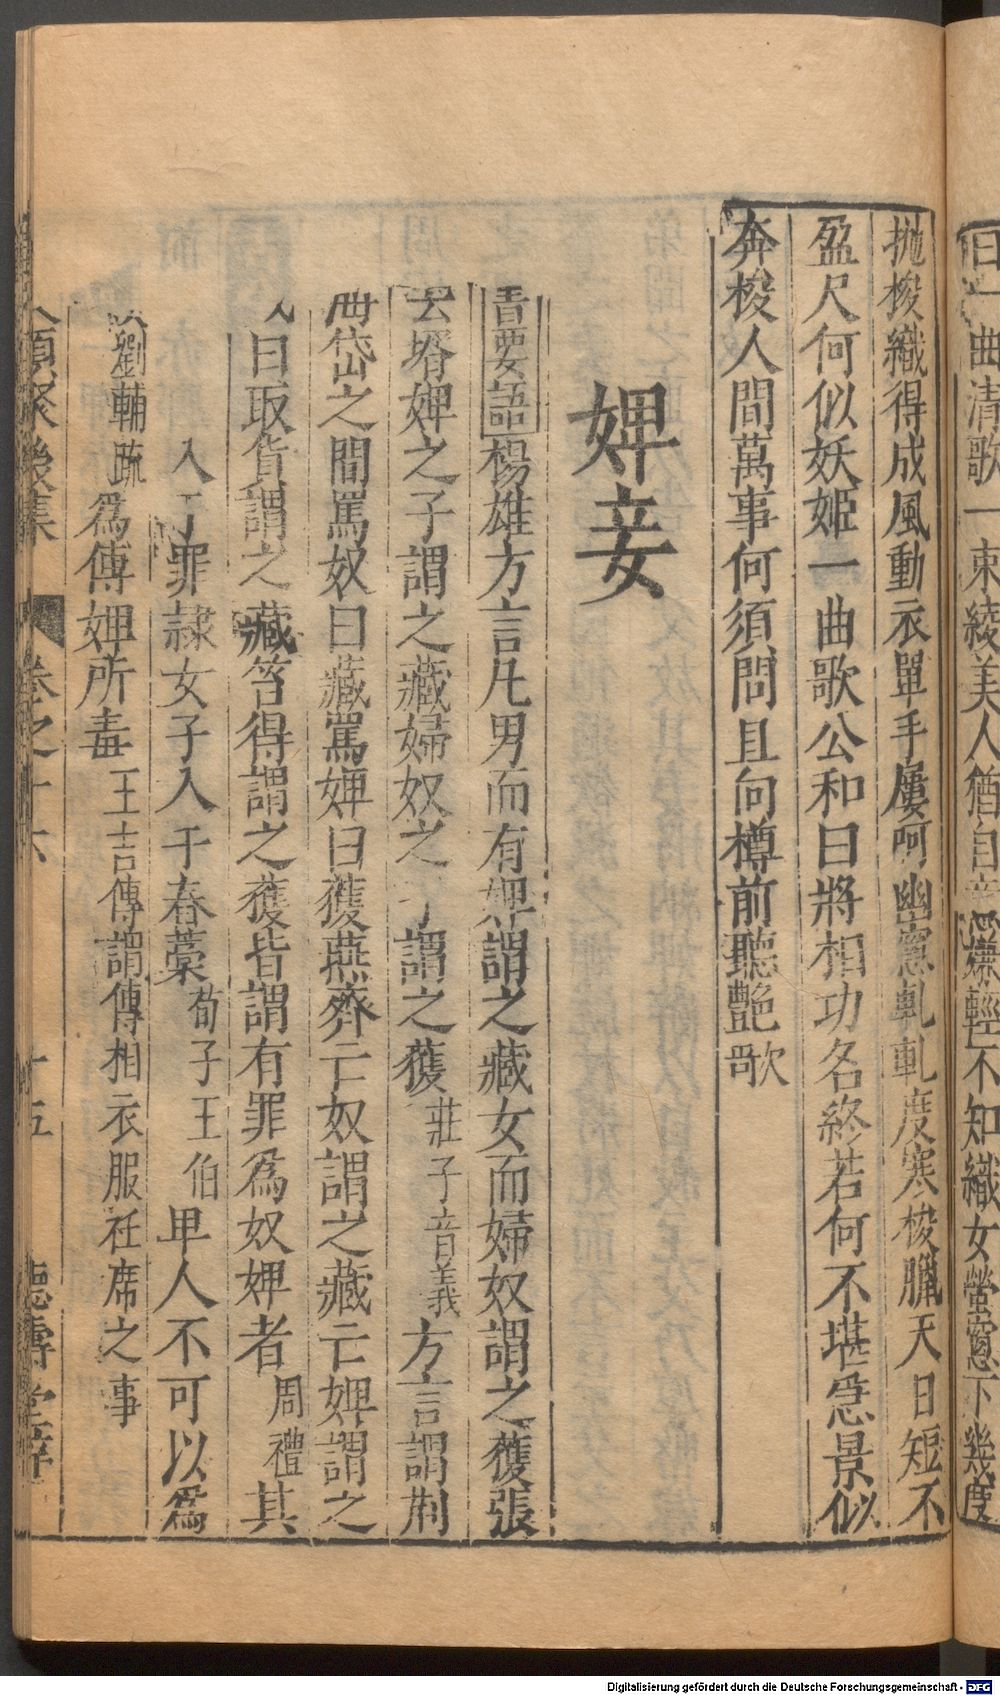 日一曲清歌一束綾美人猶自意嫌輕不知織女螢窻下幾度
抛梭織得成風動衣單手屢呵幽窻軋軋度寒梭臘天日短不
盈尺何似妖姬一曲歌公和曰將相功名終若何不堪急景似
奔梭人間萬事何須問且向樽前聽艷歌
婢妾
書要語楊雄方言凡男而有婢謂之藏女而婦奴謂之獲張
去壻婢之子謂之藏婦奴之子謂之獲莊子音義方言謂荆
岱之間罵奴曰藏罵婢曰獲燕齊亡奴謂之藏亡婢謂之
曰取貨謂之藏笞得謂之獲皆謂有罪爲奴婢者周禮其
入于罪隸女子入于春藁荀子王伯卑人不可以爲
劉輔䟽爲傅婢所毒王吉傳謂傅相衣服衽席之事
類聚後集 卷之十六 十五 德壽堂梓
Digitalisierung gefördert durch die Deutsche Forschungsgemeinschaft - DFG